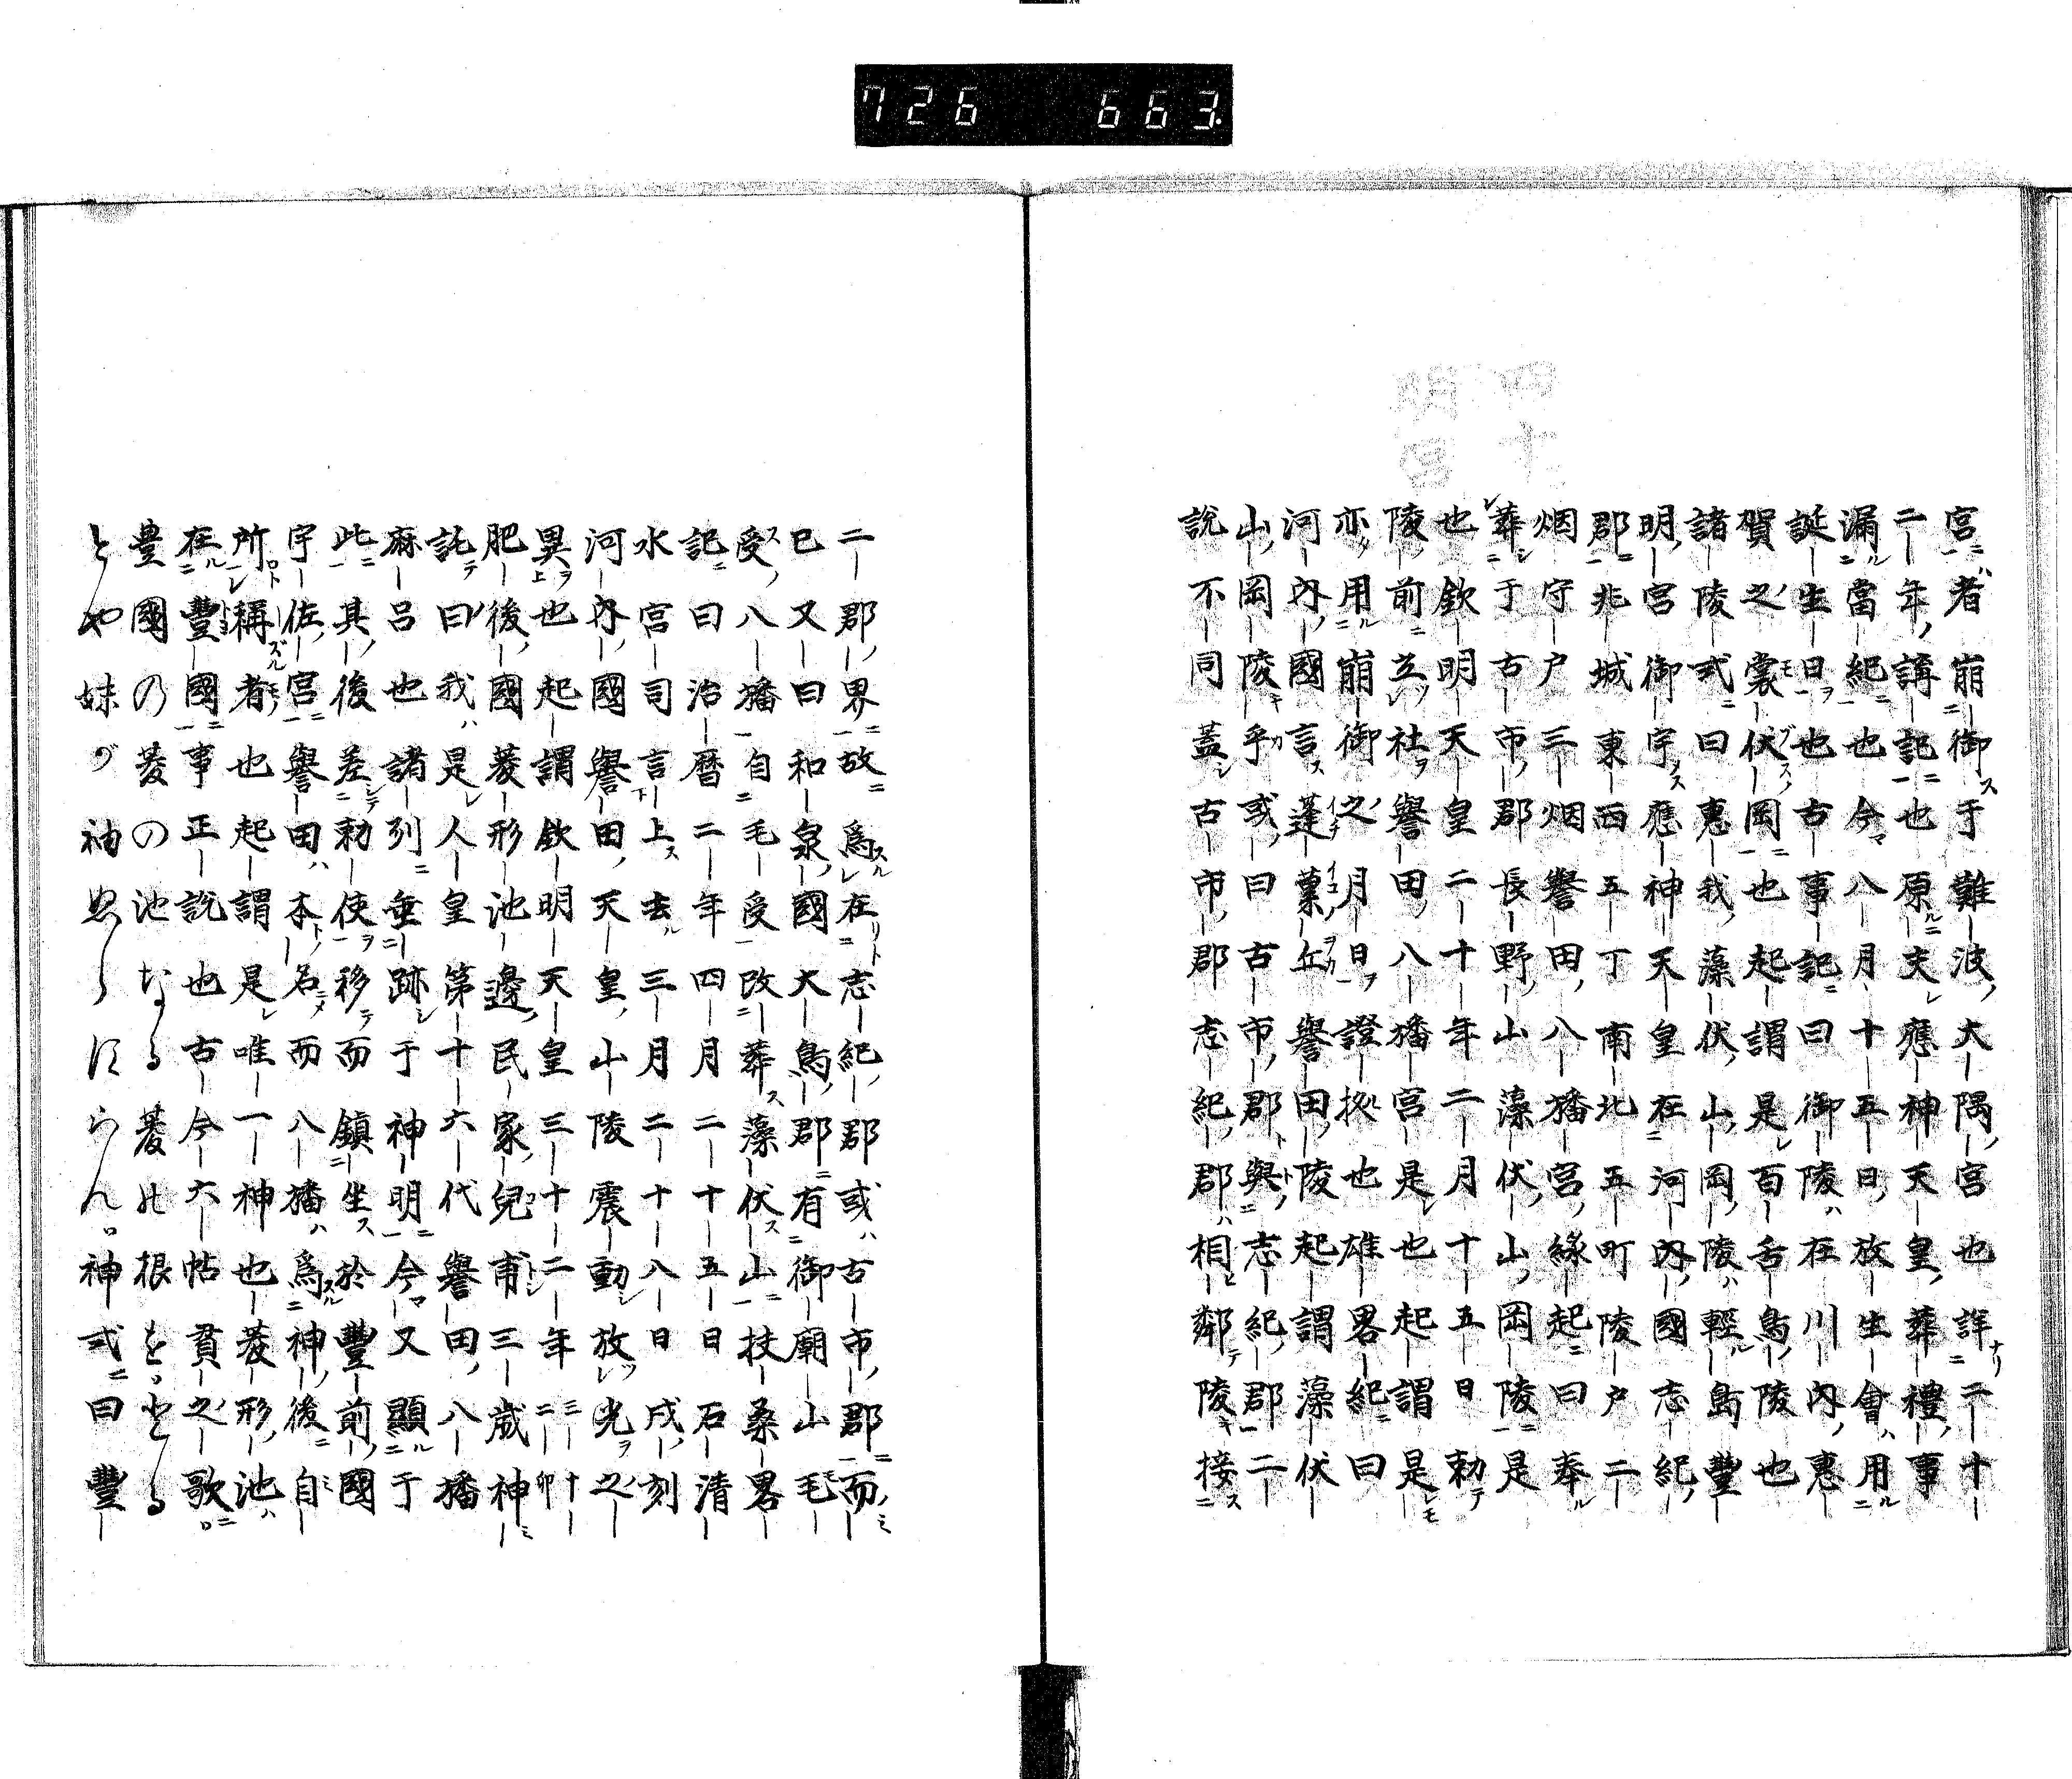 726 663
四十
明宮
宮者崩御于難波大隅宮也詳二十
二年講記也原夫應神天皇葬禮事
漏當紀也今八月十五日放生會用
誕生日也古事記曰御陵在川內惠
賀之裳伏岡也起謂是百舌鳥陵也
諸陵式曰惠我藻伏山岡陵輕島豐
明宮御宇應神天皇在河內國志紀
郡兆城東西五丁南北五町陵戸二
烟守戸三烟譽田八幡宮緣起曰奉
葬于古市郡長野山藻伏山岡陵是
也欽明天皇二十年二月十五日勅
陵前立社譽田八幡宮是也起謂是
亦用崩御之月日證拠也雄畧紀曰
河內國言蓬蔂丘譽田陵起謂藻伏
山岡陵乎或曰古市郡與志紀郡二
說不同蓋古市郡志紀郡相鄰陵接
二郡界故爲在志紀郡或古市郡而
已又曰和泉國大鳥郡有御廟山毛
受八幡自毛受改葬藻伏山扶桑畧
記曰治暦二年四月二十五日石清
水宮司言上去三月二十八日戌刻
河內國譽田天皇山陵震動放光之
異也起謂欽明天皇三十二年三十二卯
肥後國菱形池邊民家兒甫三歲神
託曰我是人皇第十六代譽田八幡
麻呂也諸列垂跡于神明今又顯于
此其後差勅使移而鎮坐於豐前國
宇佐宮譽田本名而八幡爲神後自
所稱者也起謂是唯一神也菱形池
在豐國事正說也古今六帖貫之歌
豊國の菱の池なる菱の根をとる
とや妹が袖ぬらし らん神式曰豐